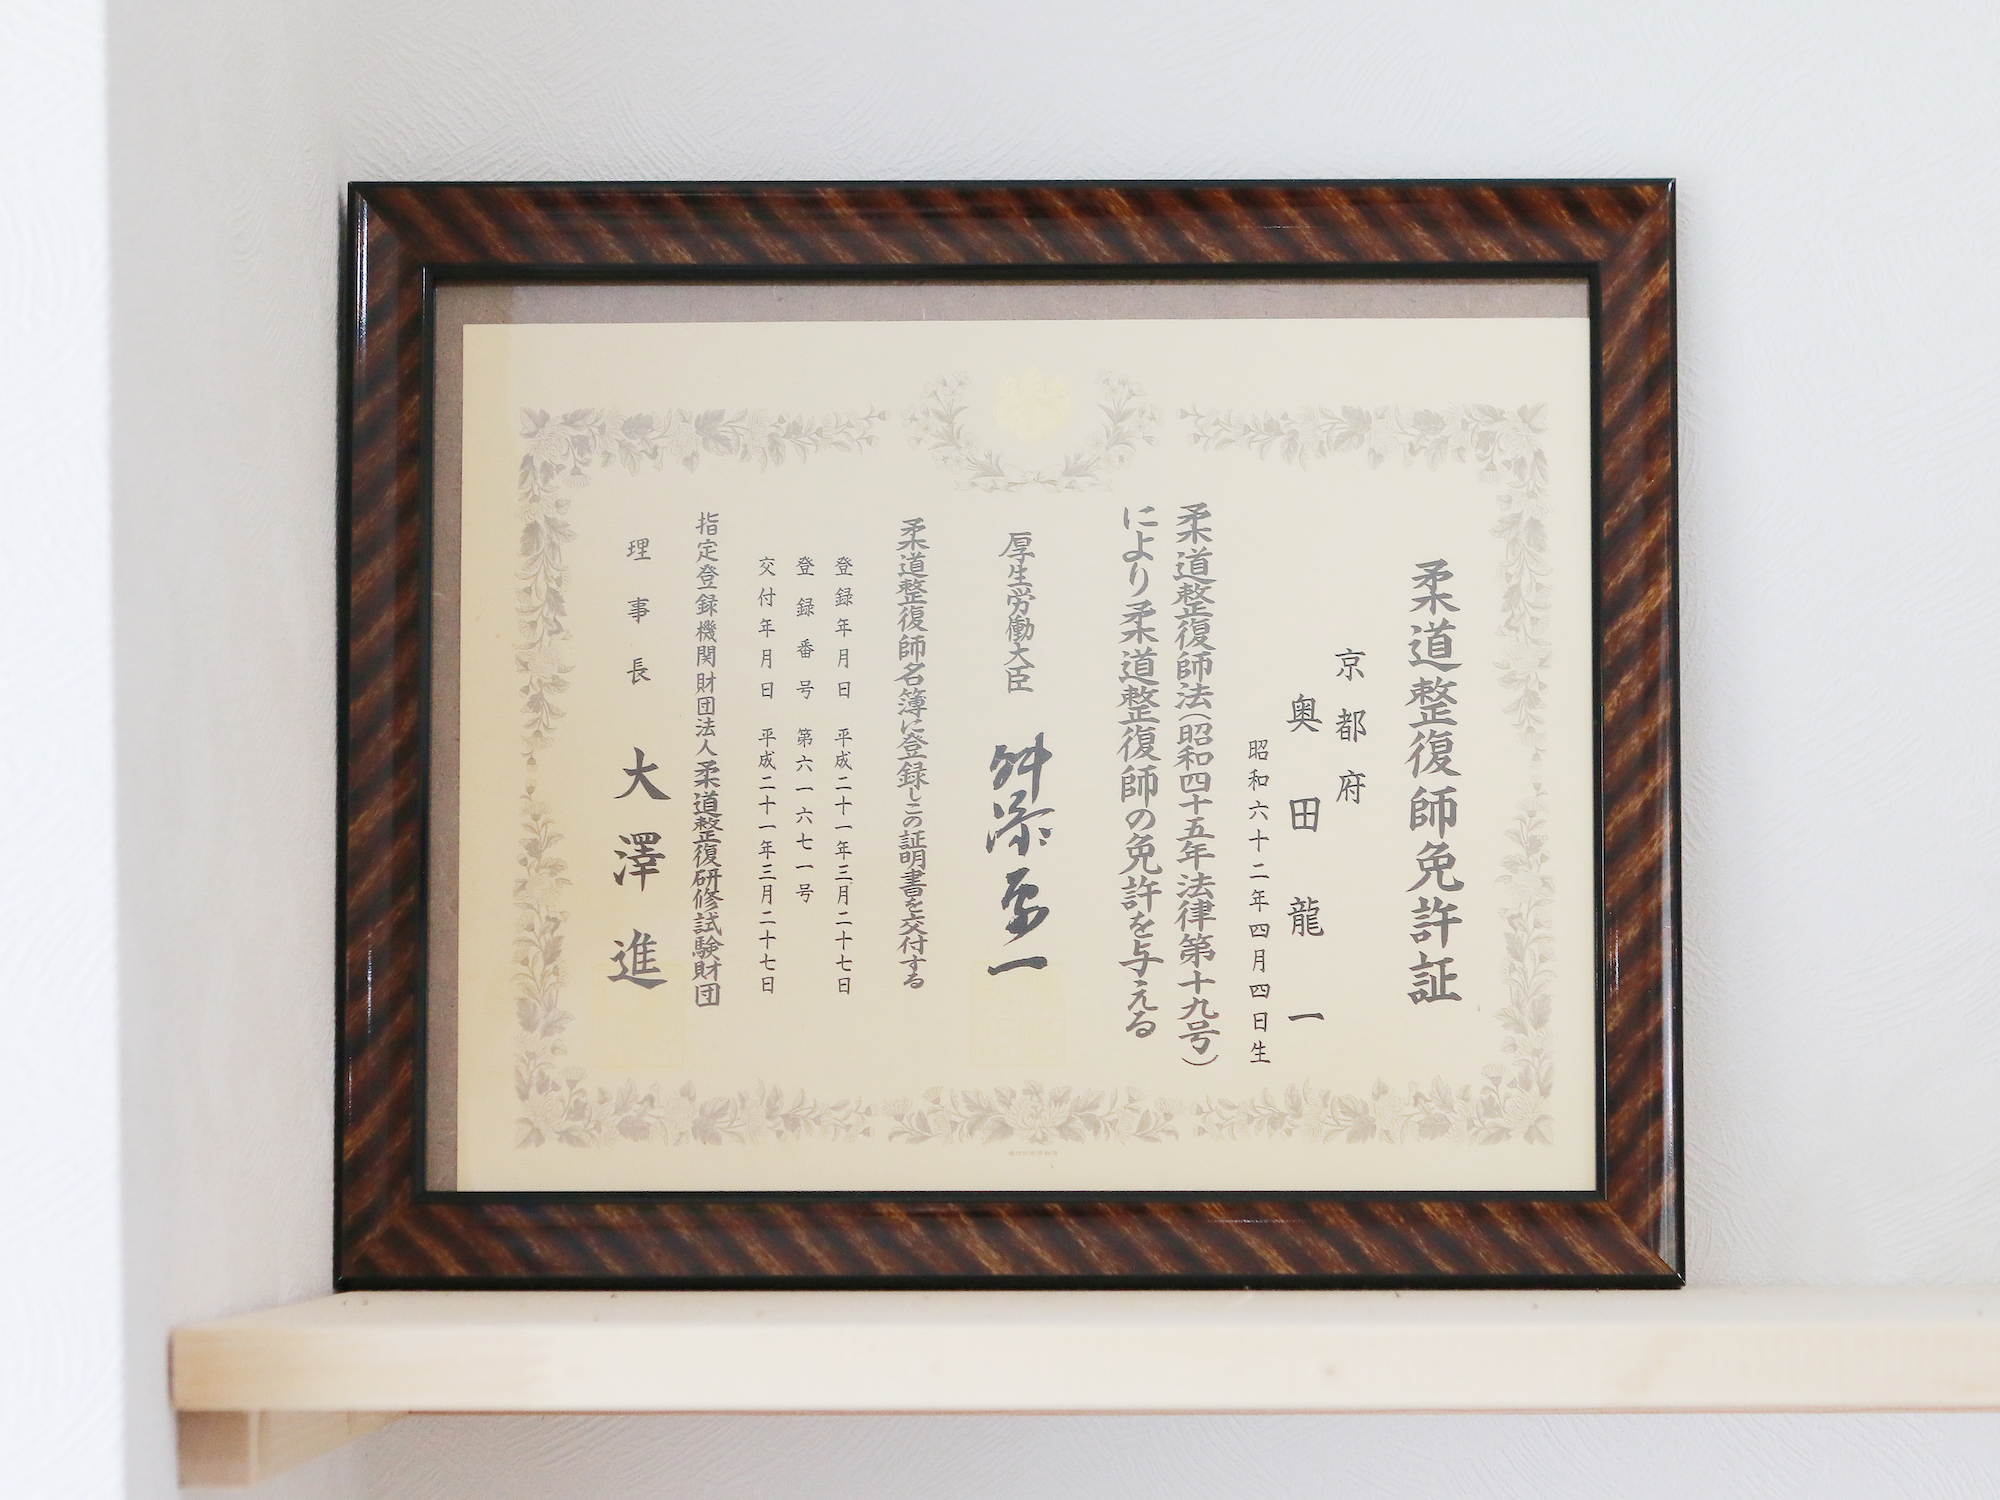 柔道整復師免許証
京都府
奥田龍一
昭和六十二年四月四日生
柔道整復師法（昭和四十五年法律第十九号）
により柔道整復師の免許を与える
厚生労働大臣 舛添要一
柔道整復師名簿に登録しこの証明書を交付する
登録年月日 平成二十一年三月二十七日
登録番号 第六一六七一号
交付年月日 平成二十一年三月二十七日
指定登録機関財団法人柔道整復研修試験財団
理事長 大澤進